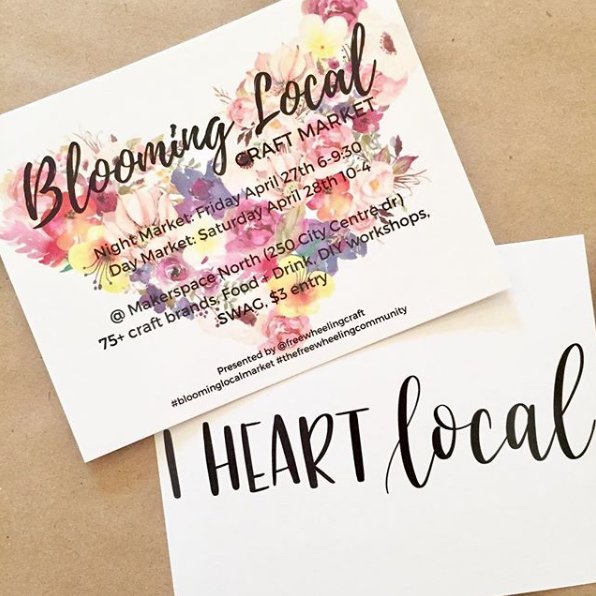 Blooming Local
CRAFT MARKET
Night Market: Friday April 27th 6-9:30
Day Market: Saturday April 28th 10-4
@ Makerspace North (250 City Centre dr)
75+ craft brands, Food + Drink, DIY workshops,
SWAG, $3 entry
Presented by @freewheelingcraft
#bloominglocalmarket #thefreewheelingcommunity
I HEART local